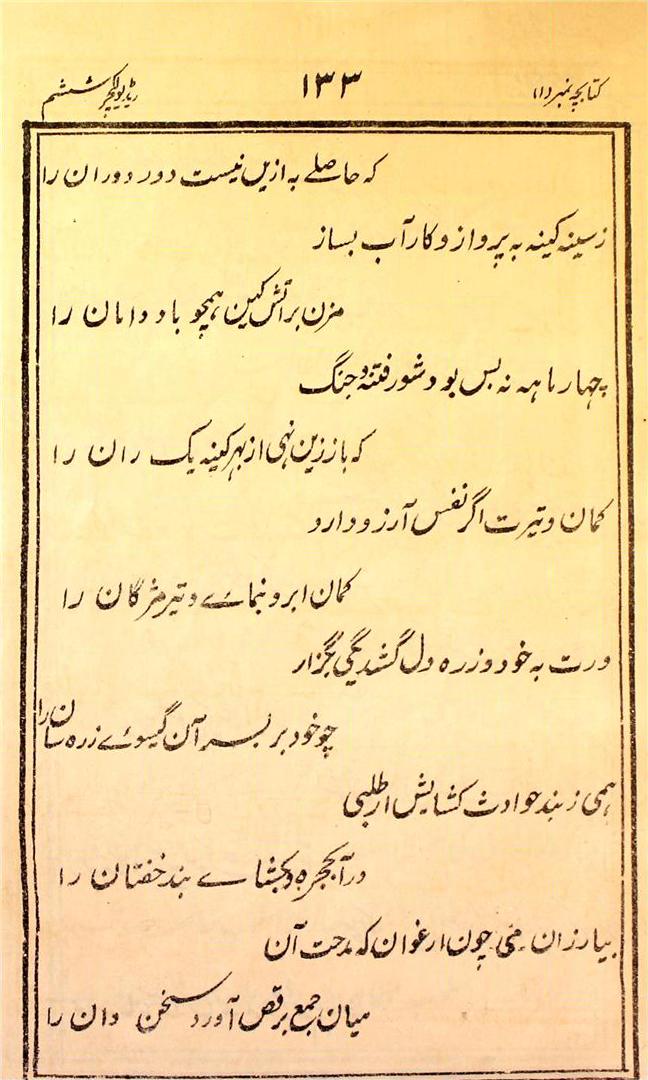 کتابچہ نمبر (۱۱
۱۳۳
ریڈیو لکچر ششم
کہ حاصلے بہ ازیں نیست دور دوران را
ز سینہ کینہ بہ پرواز و کار آب بساز
مزن بر آتش کین ہمچو باد دامان را
چہار ماہہ نہ بس بود شور فتنہ و جنگ
کہ باز زین نہی از بہر کینہ یک ران را
کمان و تیرت اگر نفس آرزو دارو
کمان ابرو نمائے و تیر مژگان را
ورت بہ خود و زرہ دل گشد یگی بگزار
چو خود بر بسر آن گیسوئے زرہ سان را
ہمی ز بند حوادث کشایش ار طلبی
در آ بحجرہ و بکشائے بند خفتان را
بیار زان مئی چون ارغوان کہ مدحت آن
میان جمع برقص آورد سخن دان را